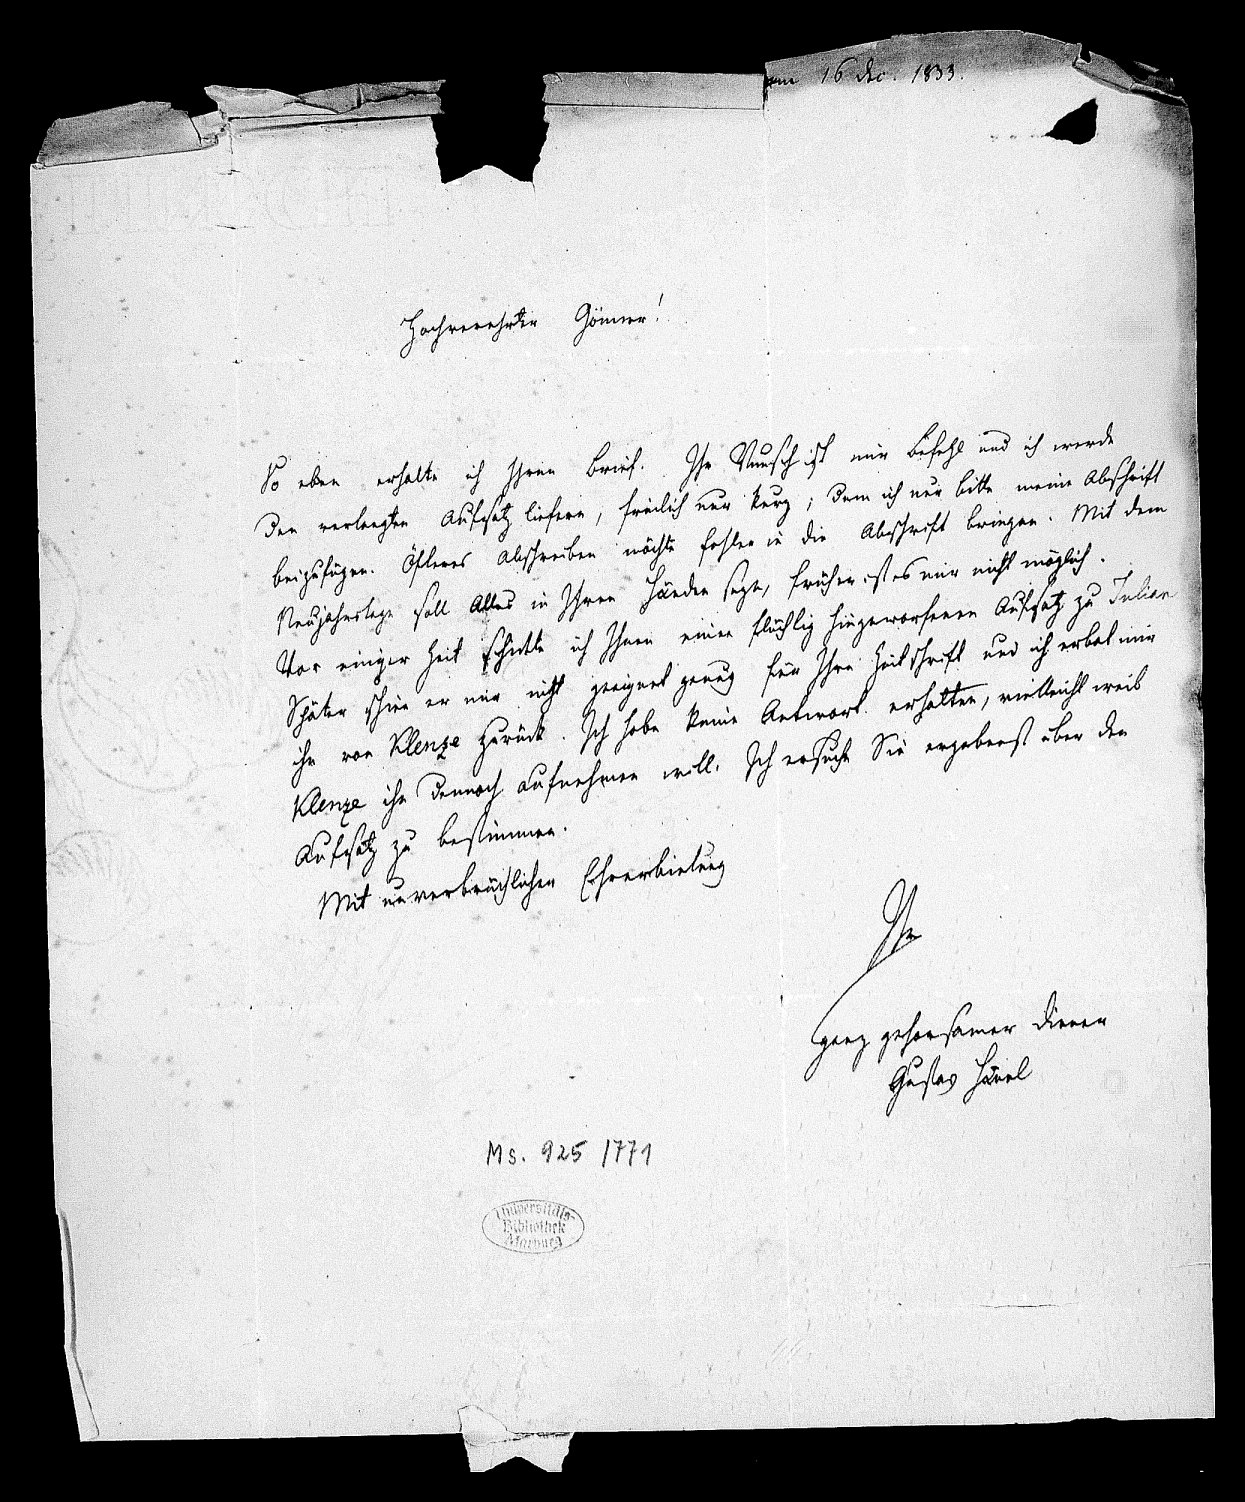 am 16 Dec. 1833.
Hochverehrter Gönner!
So eben erhalte ich Ihren Brief. Ihr Wunsch ist mir Befehl und ich werde
den verlangten Aufsatz liefern, freilich nur kurz; denn ich nur bitte meine Abschrift
beizufügen. Öfteres Abschreiben möchte Fehler in die Abschrift bringen. Mit dem
Neujahrstage soll Alles in Ihren Händen seyn, früher ist es mir nicht möglich.
Vor einiger Zeit schickte ich Ihnen einen flüchtig hingeworfenen Aufsatz zu Julian
Später schien er mir nicht geeignet genug für Ihre Zeitschrift und ich erbat mir
ihn von Klenze zurück. Ich habe keine Antwort erhalten, vielleicht weil
Klenze ihn dennoch aufnehmen will. Ich ersuche Sie ergebenst über den
Aufsatz zu bestimmen.
Mit unverbrüchlicher Ehrerbietung
Ihr
ganz gehorsamer Diener
Gustav Hänel
Ms. 925/771
Universitäts-
Bibliothek
Marburg